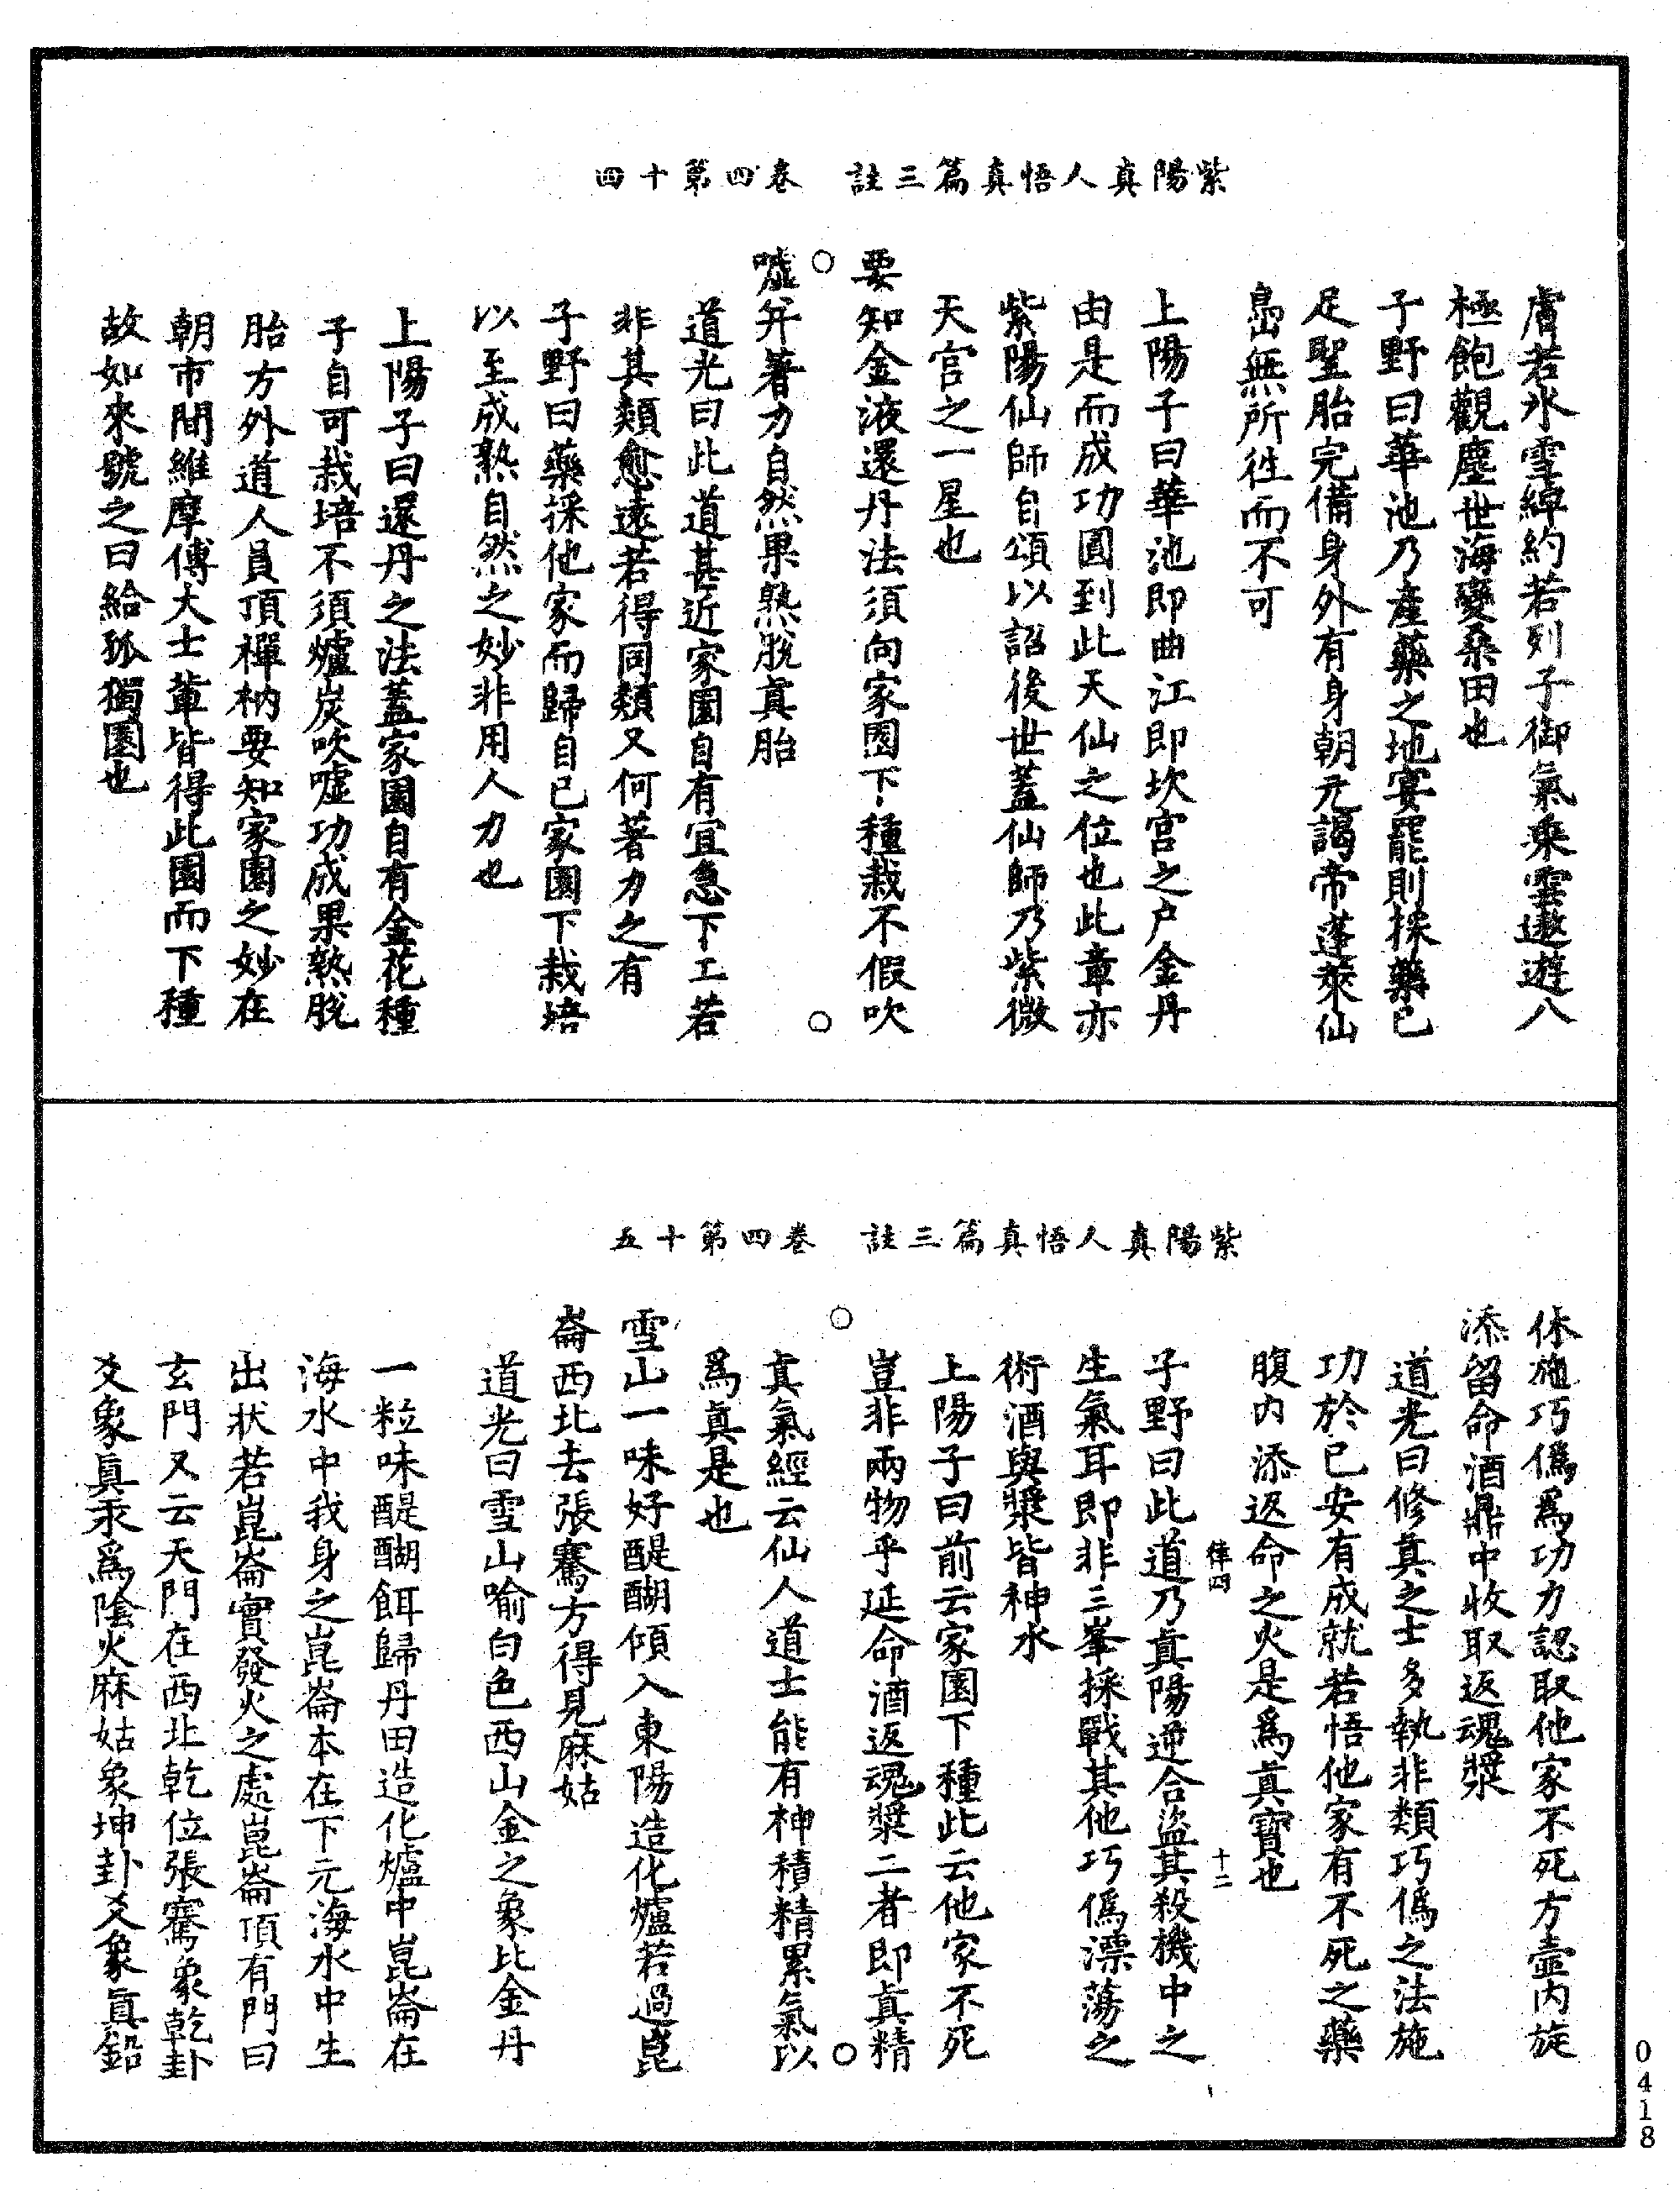 紫陽真人悟真篇三註　卷四第十四
膚若氷雪綽約若列子御氣乗雲遨遊八
極飽觀塵世海變桑田也
子野曰華池乃產藥之地宴罷則採藥已
足聖胎完備身外有身朝元謁帝蓬萊仙
島無所往而不可
上陽子曰華池即曲江即坎宮之户金丹
由是而成功圓到此天仙之位也此章亦
紫陽仙師自頌以詔後世蓋仙師乃紫微
天官之一星也
要知金液還丹法須向家園下種栽不假吹
○　○
噓幷著力自然果熟脫真胎
道光曰此道甚近家園自有宜急下工若
非其類愈遠若得同類又何著力之有
子野曰藥採他家而歸自己家園下栽培
以至成熟自然之妙非用人力也
上陽子曰還丹之法蓋家園自有金花種
子自可栽培不須爐炭吹噓功成果熟脫
胎方外道人員頂襌衲要知家園之妙在
朝市間維摩傅大士輩皆得此園而下種
故如來號之曰給孤獨園也
紫陽真人悟真篇三註　卷四第十五
休施巧僞爲功力認取他家不死方壺内旋
添留命酒鼎中收取返魂漿
道光曰修真之士多執非類巧僞之法施
功於己安有成就若悟他家有不死之藥
腹内添返命之火是爲真寶也
律四　十二
子野曰此道乃真陽逆合盜其殺機中之
生氣耳即非三峯採戰其他巧僞漂蕩之
術酒與漿皆神水
上陽子曰前云家園下種此云他家不死
豈非兩物乎延命酒返魂漿二者即真精
○　○
真氣經云仙人道士能有神積精累氣以
爲真是也
雪山一味好醍醐傾入東陽造化爐若過崑
崙西北去張騫方得見麻姑
道光曰雪山喻白色西山金之象比金丹
一粒味醍醐餌歸丹田造化爐中崑崙在
海水中我身之崑崙本在下元海水中生
出状若崑崙實發火之處崑崙頂有門曰
玄門又云天門在西北乾位張騫象乾卦
爻象真汞爲陰火麻姑象坤卦爻象真鉛
0418